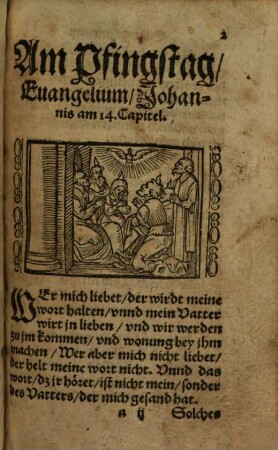 2
Am Pfingstag/
Euangelium/ Johan-
nis am 14. Capitel.
WEr mich liebet/ der wirdt meine
wort halten/ vnnd mein Vatter
wirt jn lieben / vnd wir werden
zu jm kommen/ vnd wonung bey jhm
machen / Wer aber mich nicht liebet/
der helt meine wort nicht. Vnnd das
wort/ dz jr höret/ ist nicht mein/ sonder
des Vatters/ der mich gesand hat.
a ij Solches